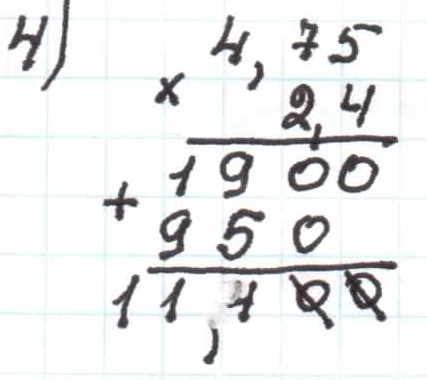 4)
4,75
× 2,4
1900
+ 950
11,100